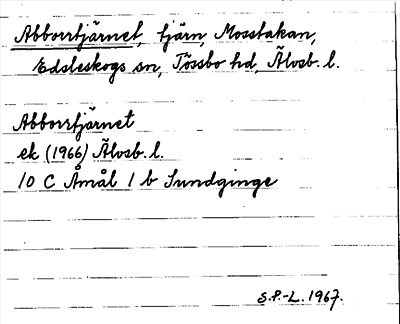 Abborrtjärnet, tjärn, Mosstakan,
Edsleskogs sn, Tössbo hd, Älvsb. l.
Abborrtjärnet
ek (1966) Älvsb. l.
10 C Åmål 1 b Sundginge
S.P.-L. 1967.